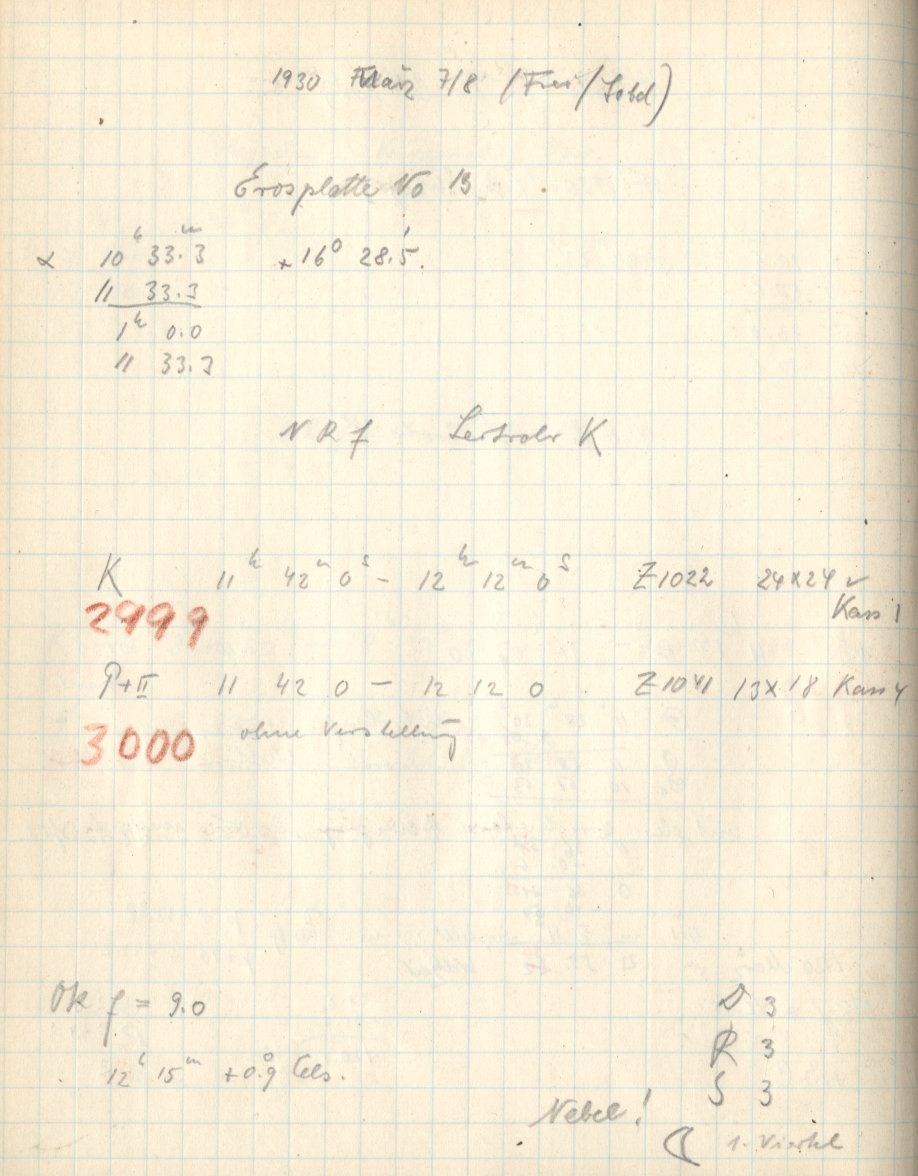 1930 März 7/8 (Frei/Sobd)
Erosplatte No 13
α 10ʰ 33.ᵐ3 + 16° 28.'5.
11 33.3
1ʰ 0.0
11 33.3
N R f Leitrohr K
K 11ʰ 42ᵐ 0ˢ - 12ʰ 12ᵐ 0ˢ Z1022 24x24
Kass 1
2999
P+II 11 42 0 - 12 12 0 Z1041 13x18 Kass 4
3000 ohne Verstellung
Ok f = 9.0
D 3
R 3
12ʰ 15ᵐ +0.°9 Cels.
S 3
Nebel!
☾ 1. Viertel